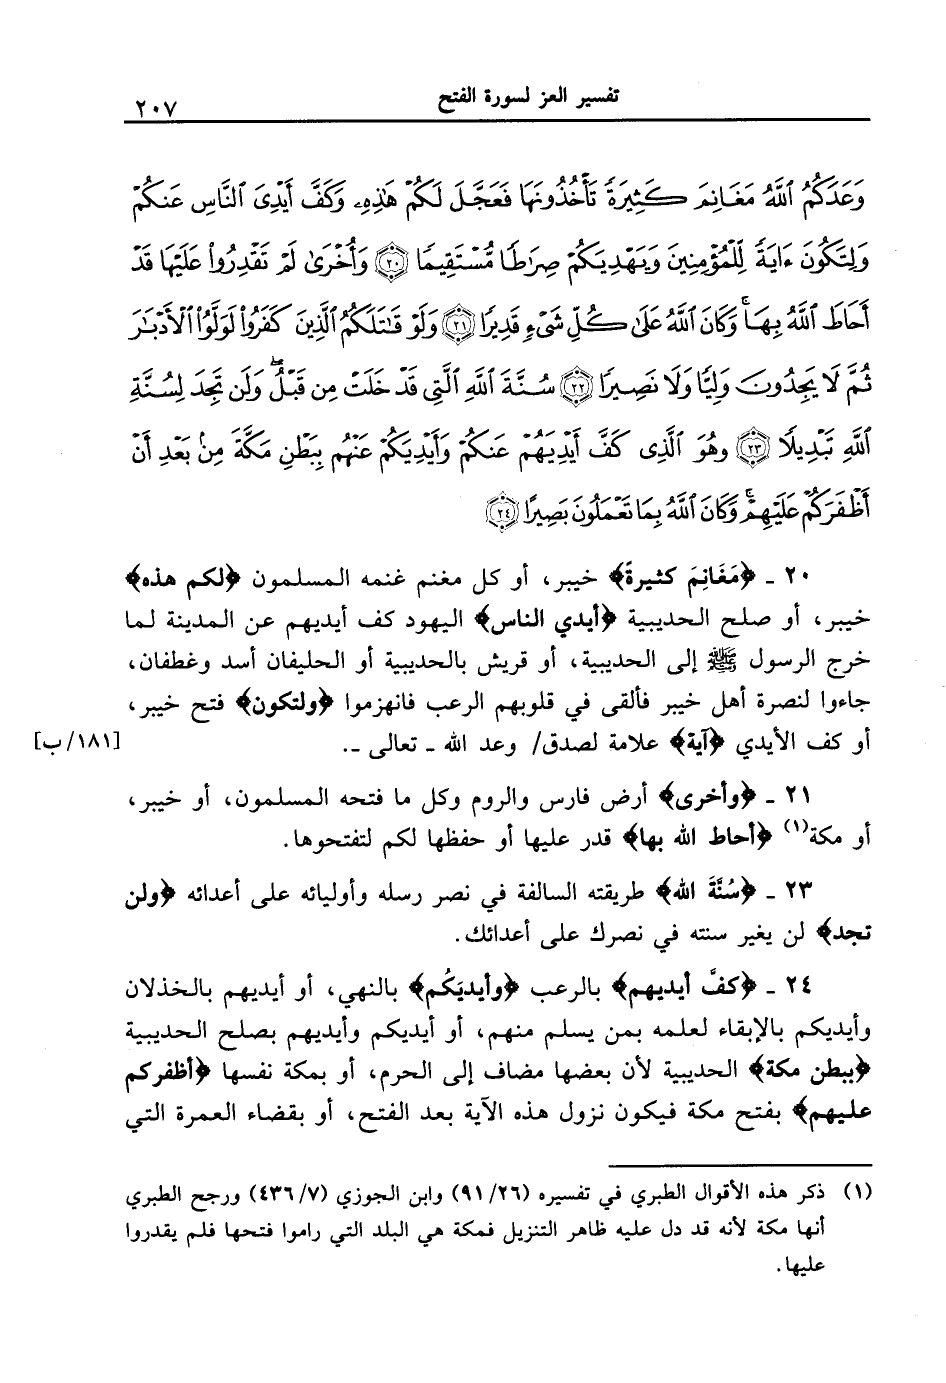 تفسير العز لسورة الفتح
٢٠٧
وَعَدَكُمُ ٱللَّهُ مَغَانِمَ كَثِيرَةً تَأْخُذُونَهَا فَعَجَّلَ لَكُمْ هَٰذِهِۦ وَكَفَّ أَيْدِىَ ٱلنَّاسِ عَنكُمْ
وَلِتَكُونَ ءَايَةً لِّلْمُؤْمِنِينَ وَيَهْدِيَكُمْ صِرَٰطًا مُّسْتَقِيمًا ۝٢٠ وَأُخْرَىٰ لَمْ تَقْدِرُوا۟ عَلَيْهَا قَدْ
أَحَاطَ ٱللَّهُ بِهَا ۚ وَكَانَ ٱللَّهُ عَلَىٰ كُلِّ شَىْءٍ قَدِيرًا ۝٢١ وَلَوْ قَٰتَلَكُمُ ٱلَّذِينَ كَفَرُوا۟ لَوَلَّوُا۟ ٱلْأَدْبَٰرَ
ثُمَّ لَا يَجِدُونَ وَلِيًّا وَلَا نَصِيرًا ۝٢٢ سُنَّةَ ٱللَّهِ ٱلَّتِى قَدْ خَلَتْ مِن قَبْلُ ۖ وَلَن تَجِدَ لِسُنَّةِ
ٱللَّهِ تَبْدِيلًا ۝٢٣ وَهُوَ ٱلَّذِى كَفَّ أَيْدِيَهُمْ عَنكُمْ وَأَيْدِيَكُمْ عَنْهُم بِبَطْنِ مَكَّةَ مِنۢ بَعْدِ أَنْ
أَظْفَرَكُمْ عَلَيْهِمْ ۚ وَكَانَ ٱللَّهُ بِمَا تَعْمَلُونَ بَصِيرًا ۝٢٤
٢٠ ـ ﴿مَغَانِمَ كثيرةً﴾ خيبر، أو كل مغنم غنمه المسلمون ﴿لكم هذه﴾
خيبر، أو صلح الحديبية ﴿أيدي الناس﴾ اليهود كف أيديهم عن المدينة لما
خرج الرسول ﷺ إلى الحديبية، أو قريش بالحديبية أو الحليفان أسد وغطفان،
جاءوا لنصرة أهل خيبر فألقى في قلوبهم الرعب فانهزموا ﴿ولتكون﴾ فتح خيبر،
أو كف الأيدي ﴿آية﴾ علامة لصدق/ وعد الله ـ تعالى ـ. [١٨١/ب]
٢١ ـ ﴿وأخرى﴾ أرض فارس والروم وكل ما فتحه المسلمون، أو خيبر،
أو مكة(١) ﴿أحاط الله بها﴾ قدر عليها أو حفظها لكم لتفتحوها.
٢٣ ـ ﴿سُنَّةَ الله﴾ طريقته السالفة في نصر رسله وأوليائه على أعدائه ﴿ولن
تجد﴾ لن يغير سنته في نصرك على أعدائك.
٢٤ ـ ﴿كفَّ أيديهم﴾ بالرعب ﴿وأيديَكُم﴾ بالنهي، أو أيديهم بالخذلان
وأيديكم بالإبقاء لعلمه بمن يسلم منهم، أو أيديكم وأيديهم بصلح الحديبية
﴿ببطن مكة﴾ الحديبية لأن بعضها مضاف إلى الحرم، أو بمكة نفسها ﴿أظفركم
عليهم﴾ بفتح مكة فيكون نزول هذه الآية بعد الفتح، أو بقضاء العمرة التي
(١) ذكر هذه الأقوال الطبري في تفسيره (٩١/٢٦) وابن الجوزي (٤٣٦/٧) ورجح الطبري
أنها مكة لأنه قد دل عليه ظاهر التنزيل فمكة هي البلد التي راموا فتحها فلم يقدروا
عليها.